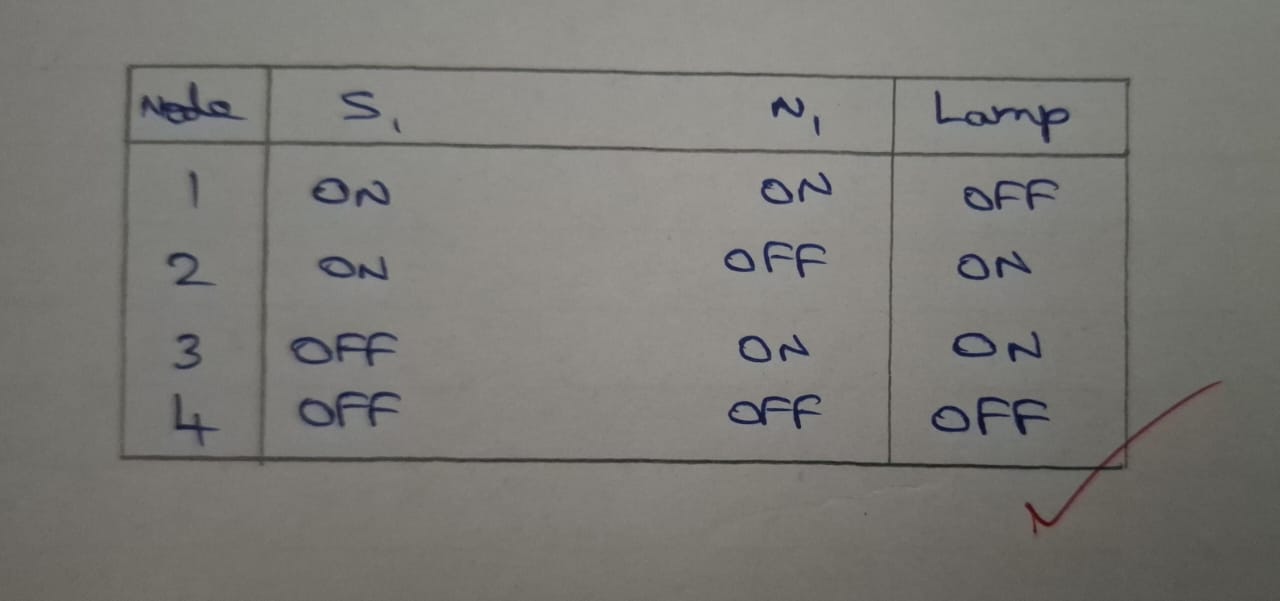 Node S₁ N₁ Lamp
1 ON ON OFF
2 ON OFF ON
3 OFF ON ON
4 OFF OFF OFF